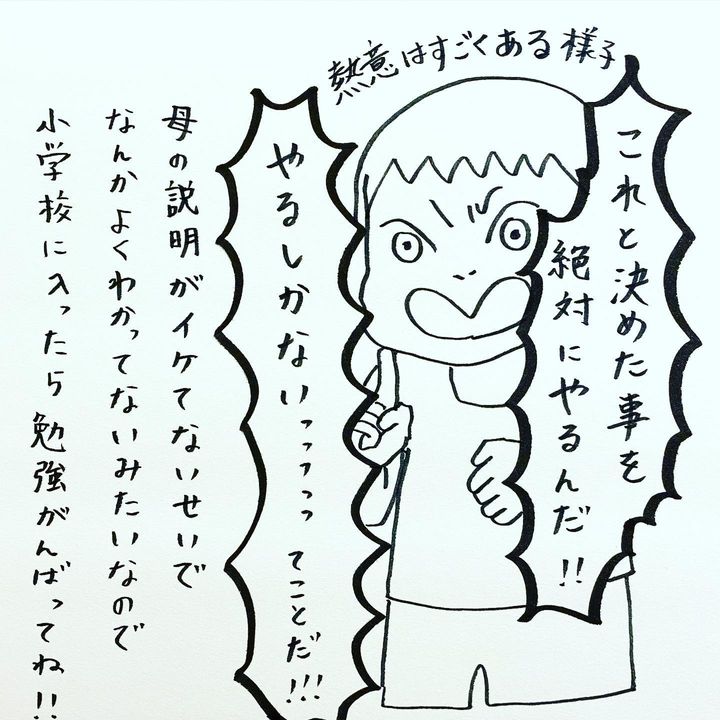 熱意はすごくある様子
これと決めた事を
絶対にやるんだ!!
やるしかないっっっっっ てことだ!!!
母の説明がイケてないせいで
なんかよくわかってないみたいなので
小学校に入ったら勉強がんばってね!!